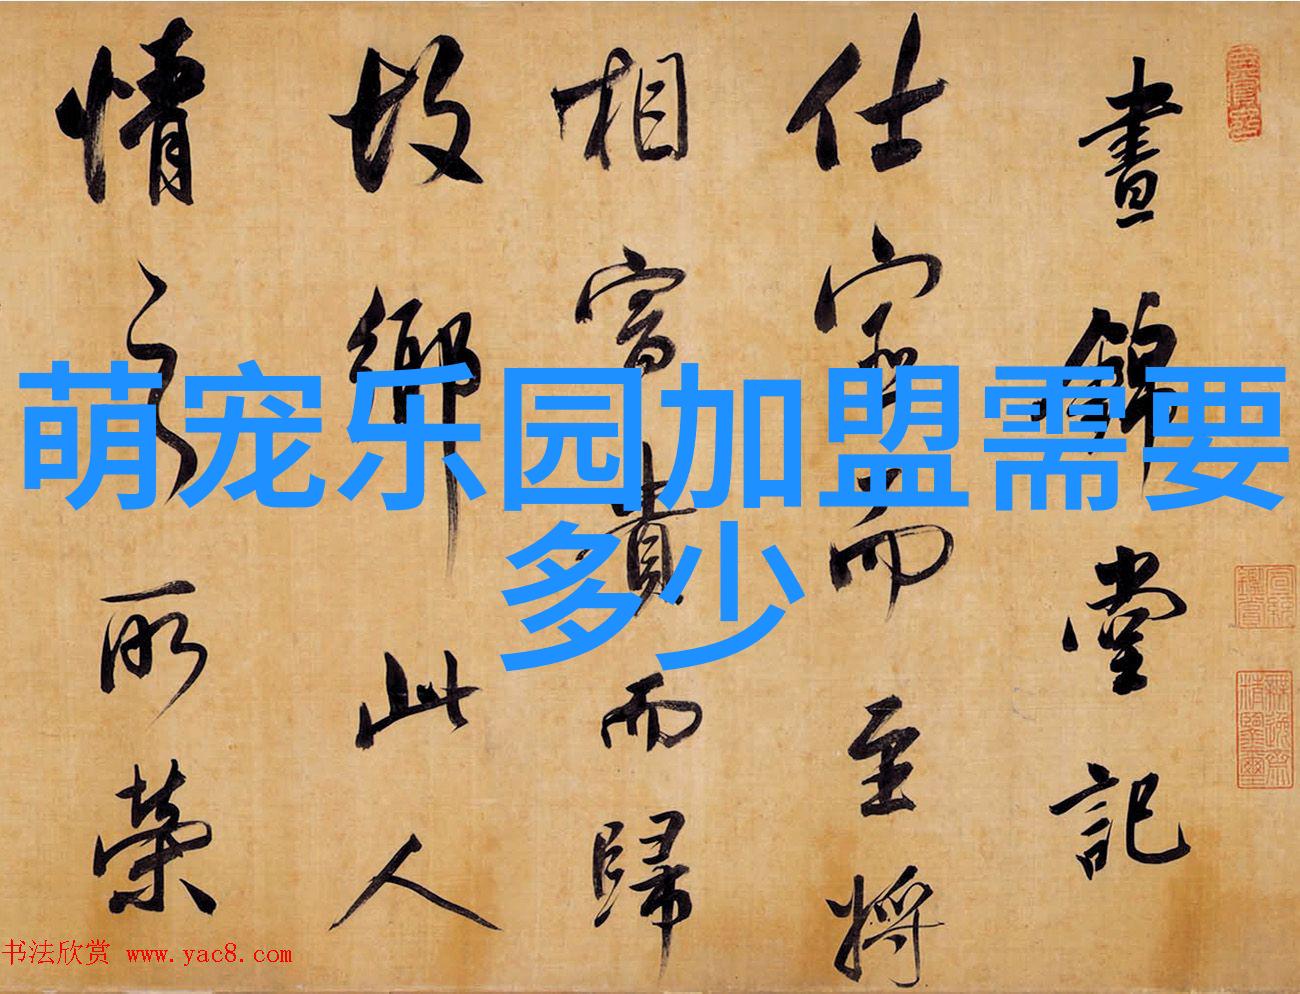 萌宠乐园加盟需要
多少
晝錦堂記
仕宦而至將
相富貴而歸
故鄉此人
情之所榮
书法欣赏 www.yac8.com